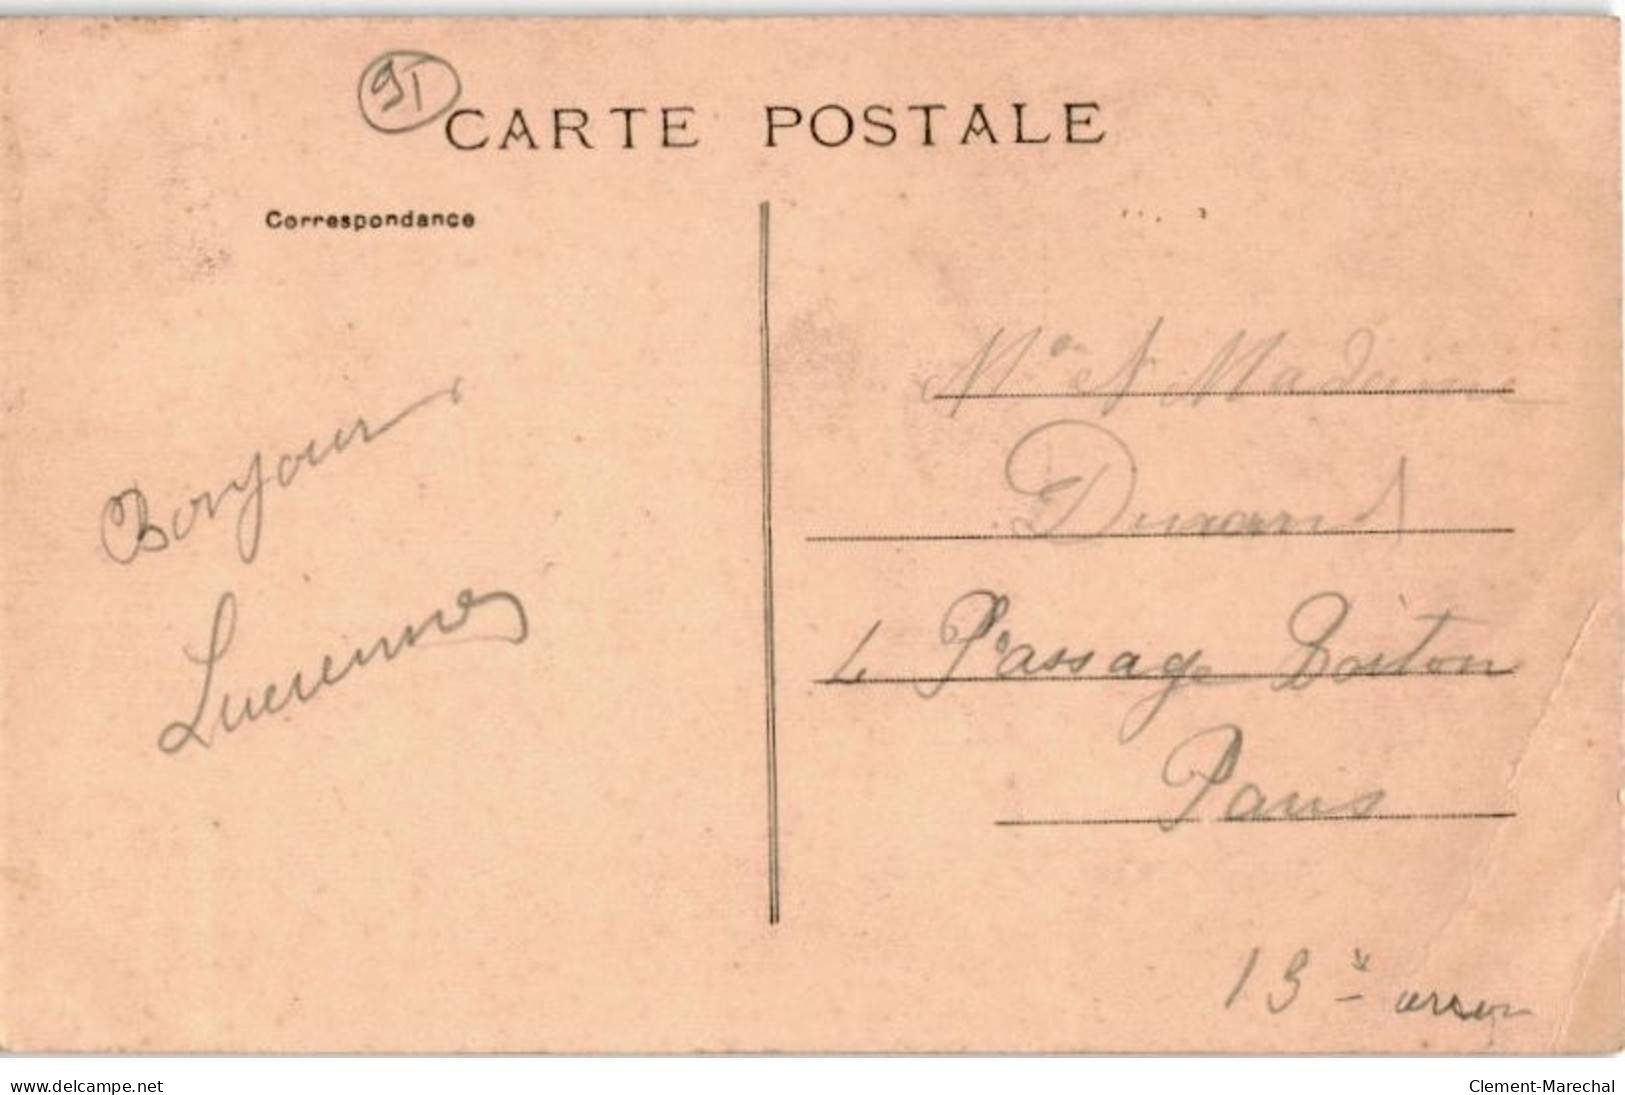 91
CARTE POSTALE
Correspondance
Bonjour
Lucienne
Mr et Madame
Durand
4 Passage Boiton
Paris
13e arron
www.delcampe.net
Clement-Marechal